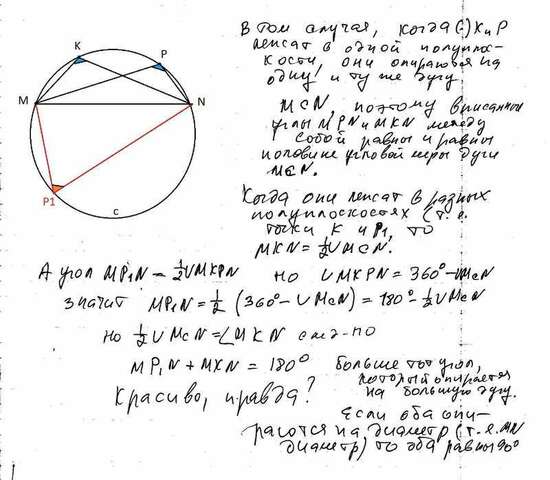 K
P
M
N
P1
c
В том случая, когда (·) K и P
лежат в одной полуплос-
кости, они опираются на
одну и ту же дугу
McN, поэтому вписанные
углы MPN и MKN между
собой равны и равны
половине угловой меры дуги
McN.
Когда они лежат в разных
полуплоскостях (т. е.
точки K и P1, то
MKN = ½ ∪ McN.
А угол MP1N = ½ ∪ MKPN но ∪ MKPN = 360° − ∪ McN
значит MP1N = ½ (360° − ∪ McN) = 180° − ½ ∪ McN
но ½ ∪ McN = ∠ MKN след-но
MP1N + MKN = 180°
Красиво, правда?
Больше тот угол,
который опирается
на большую дугу.
Если оба опи-
раются на диаметр (т. е. MN
диаметр) то оба равны 90°